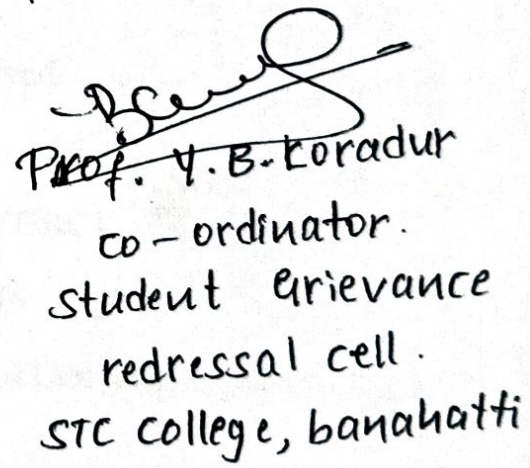 Prof. Y. B. Koradur
co-ordinator.
student Grievance
redressal cell.
STC college, banahatti